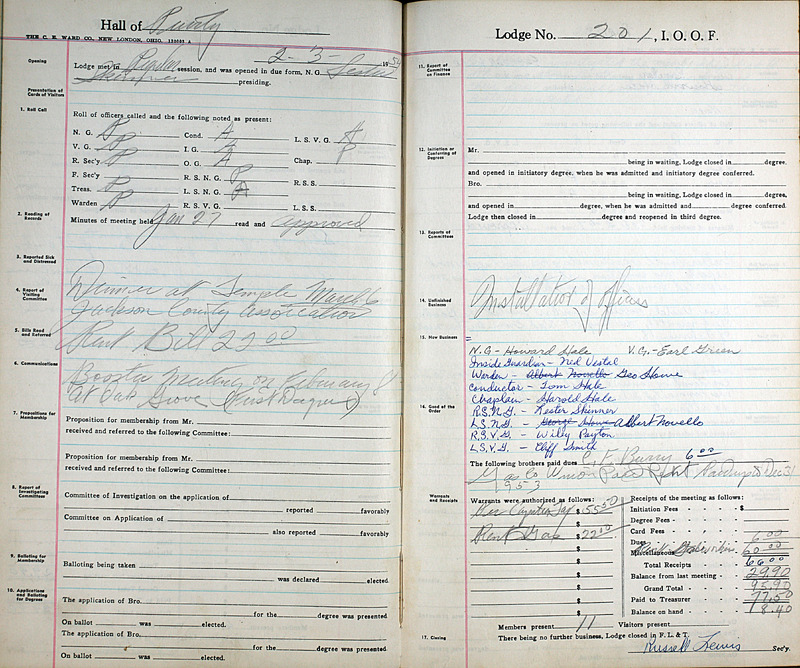 Hall of
THE C. E. WARD CO., NEW LONDON, OHIO, 123023 A
Opening
Lodge met in Regular session, and was opened in due form, N. G. Lester
2-3- 19 54
Skinner presiding.
Presentation of Cards of Visitors
1. Roll Call
Roll of officers called and the following noted as present:
N. G. P Cond. A L. S. V. G. A
V. G. P I. G. A Chap. P
R. Sec'y. P O. G. A
F. Sec'y P R. S. N. G. P R. S. S.
Treas. P L. S. N. G. A
Warden P R. S. V. G. L. S. S.
2. Reading of Records
Minutes of meeting held Jan 27 read and approved
3. Reported Sick and Distressed
4. Report of Visiting Committee
Dinner at Temple March 6
Jackson County Association
5. Bills Read and Referred
Rent Bill 22 00
6. Communications
Booster Meeting on February 8
At Oak Grove (First Degree)
7. Propositions for Membership
Proposition for membership from Mr.
received and referred to the following Committee:
Proposition for membership from Mr.
received and referred to the following Committee:
8. Report of Investigating Committees
Committee of Investigation on the application of
reported favorably
Committee on Application of
also reported favorably
9. Balloting for Membership
Balloting being taken
was declared elected.
10. Applications and Balloting for Degrees
The application of Bro.
for the degree was presented
On ballot was elected.
The application of Bro.
for the degree was presented.
On ballot was elected.
Lodge No. 201, I. O. O. F.
11. Report of Committee on Finance
12. Initiation or Conferring of Degrees
Mr.
being in waiting, Lodge closed in degree.
and opened in initiatory degree, when he was admitted and initiatory degree conferred.
Bro.
being in waiting, Lodge closed in degree,
and opened in degree, when he was admitted and degree conferred.
Lodge then closed in degree and reopened in third degree.
13. Reports of Committees
14. Unfinished Business
Installation of officers
15. New Business
N.G - Howard Hale V.G. - Earl Green
Inside Guardian - Ned Vestal
Warden - Albert Novello Geo Howe
Conductor - Tom Hale
Chaplain - Harold Hale
16. Good of the Order
R.S.N.G. - Lester Skinner
L.S.N.G. - George Howe Albert Novello
R.S.V.G. - Willy Payton
L.S.V.G. - Cliff Smith
The following brothers paid dues C. F. Berry 6.00
Dec 31
1953
Warrants and Receipts
Warrants were authorized as follows:
$ 55.50
Rent $ 22.00
$
$
$
$
$
$
$
Receipts of the meeting as follows:
Initiation Fees $
Degree Fees
Card Fees
Dues 6.00
Miscellaneous 60 00
Total Receipts 66 00
Balance from last meeting 29.90
Grand Total 95.90
Paid to Treasurer 77.50
Balance on hand 18.40
Members present 11 Visitors present
17. Closing
There being no further business, Lodge closed in F. L. & T.
Russell Lewis Sec'y.